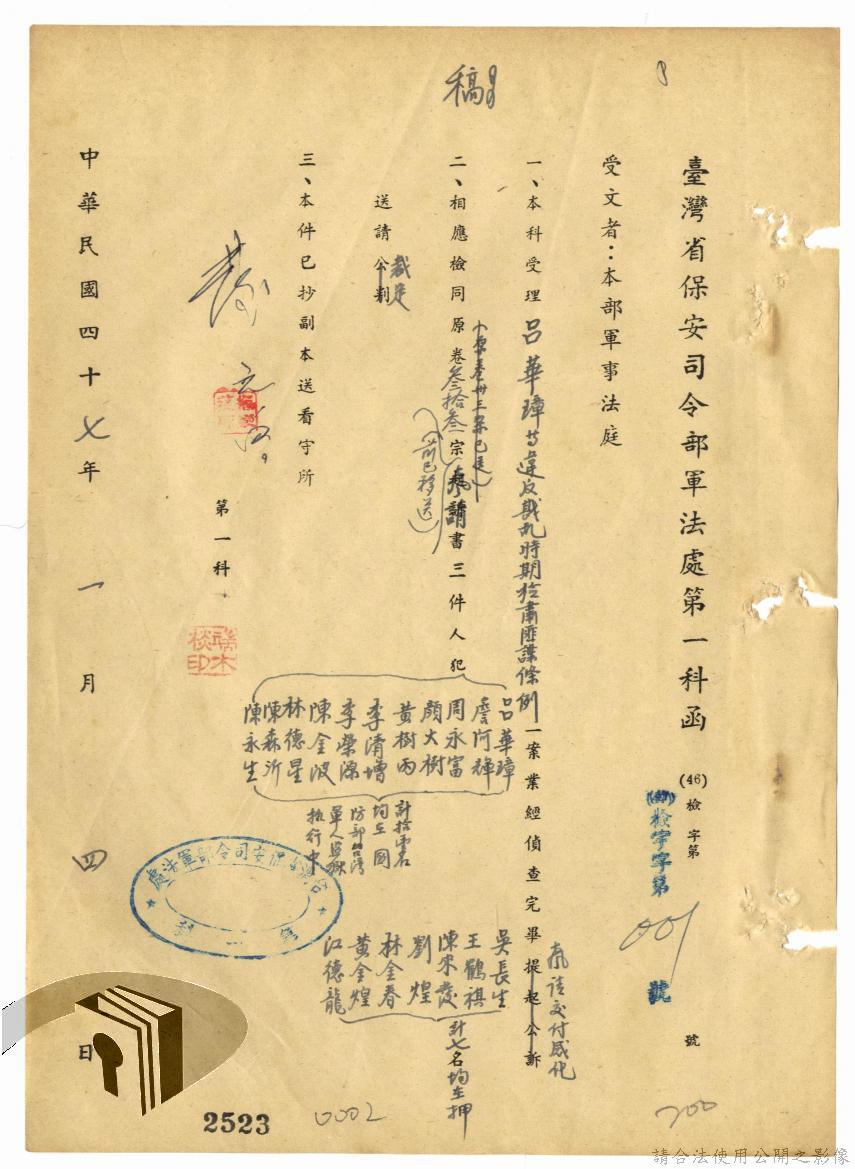 稿
臺灣省保安司令部軍法處第一科函
(46)檢字第
檢字字第
001
號
號
受文者：本部軍事法庭
一、本科受理呂華璋等違反戡亂時期檢肅匪諜條例一案業經偵查完畢提起公訴
聲請交付感化
二、相應檢同原卷叁拾叁宗聲請書三件人犯
(原卷卅三宗已送)
(前已移送)
呂華璋
詹阿輝
周永富
顏大樹
黃樹丙
李清增
李榮源
陳金波
林德星
陳森沂
陳永生
均在國
防部台灣
軍人監獄
執行中
吳長生
王鶴祺
陳來發
劉煌
林金春
黃金煌
江德龍
計七名均在押
送請公判
裁定
三、本件已抄副本送看守所
第一科
中華民國四十七年一月四日
2523
0002
200
請合法使用公開之影像